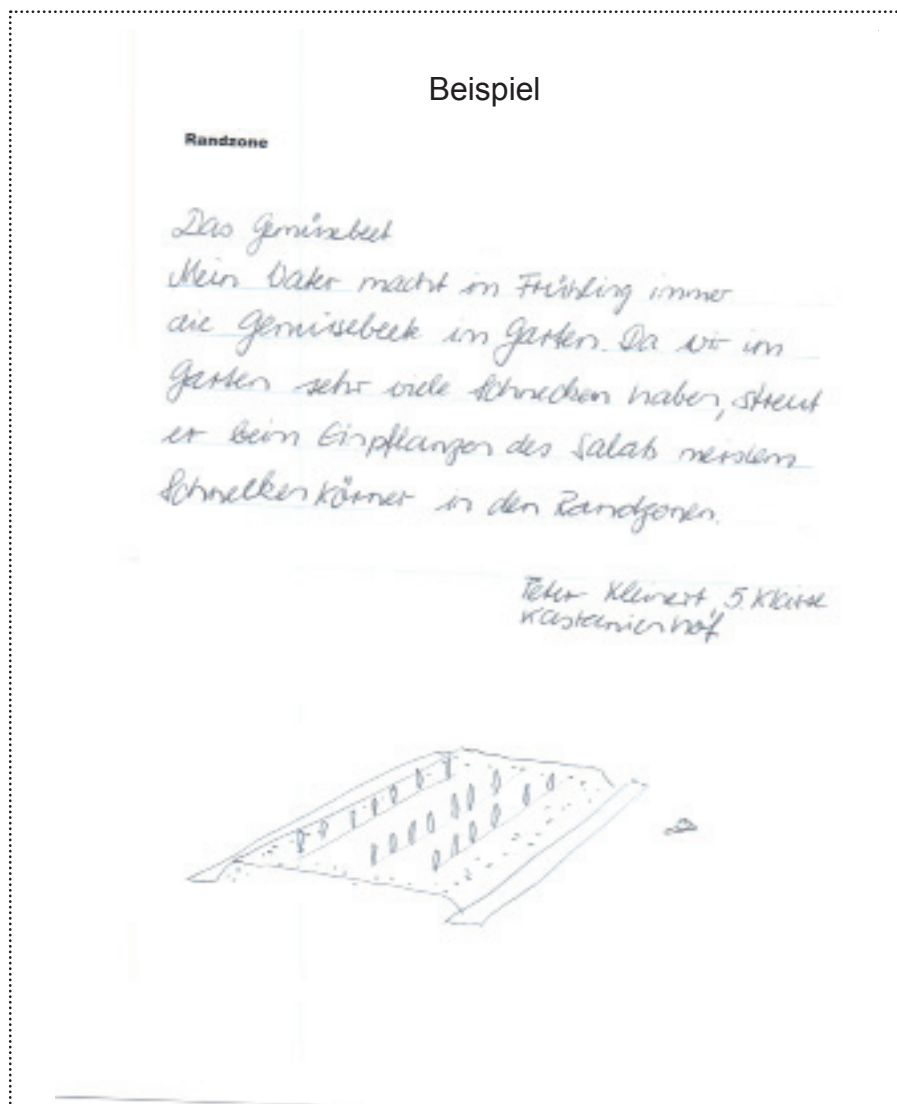 Beispiel
Randzone
Das Gemüsebeet
Mein Vater macht im Frühling immer
die Gemüsebeete im Garten. Da wir im
Garten sehr viele Schnecken haben, streut
er beim Einpflanzen des Salats meistens
Schneckenkörner in den Randzonen.
Peter Kleinert, 5. Klasse
Kastanienhof